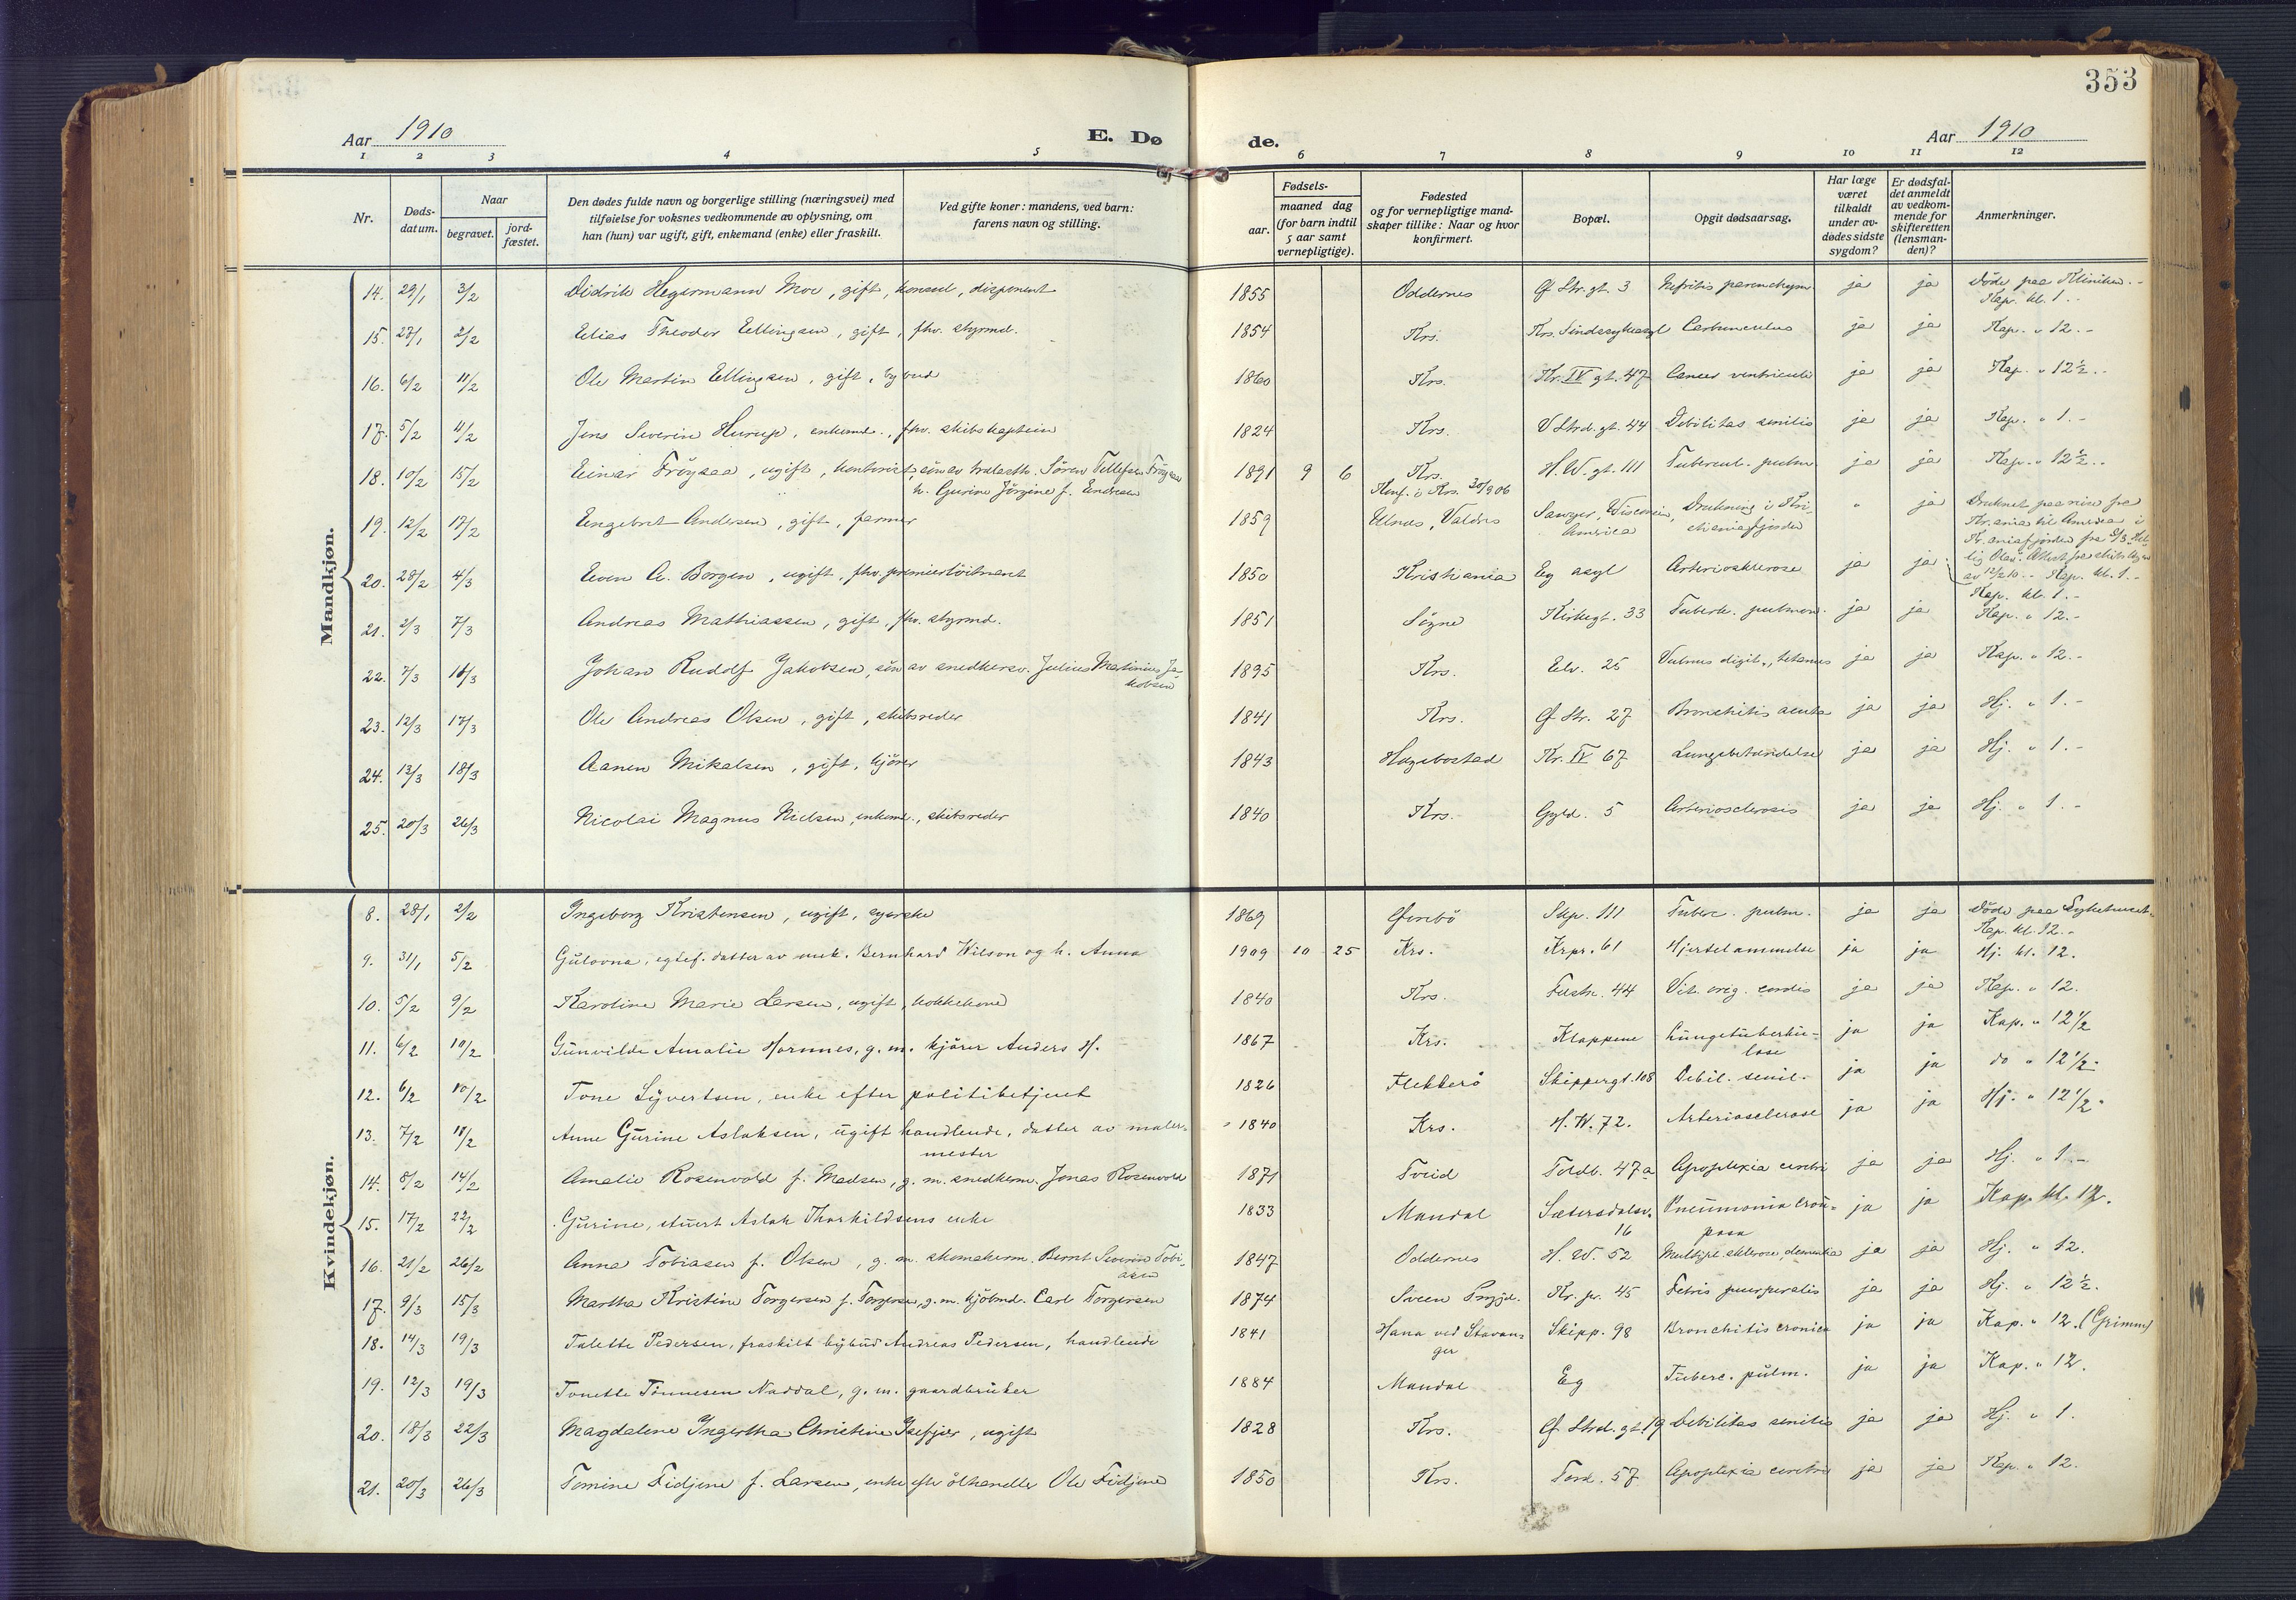 353
Aar 1910 E. Døde. Aar 1910
1 2 3 4 5 6 7 8 9 10 11 12
Nr. Døds-datum. Naar begravet. jord-fæstet. Den dødes fulde navn og borgerlige stilling (næringsvei) med tilføielse for voksnes vedkommende av oplysning, om han (hun) var ugift, gift, enkemand (enke) eller fraskilt. Ved gifte koner: mandens, ved barn: farens navn og stilling. Fødsels- aar. maaned dag (for barn indtil 5 aar samt vernepligtige). Fødested og for vernepligtige mandskaper tillike: Naar og hvor konfirmert. Bopæl. Opgit dødsaarsag. Har læge været tilkaldt under avdødes sidste sygdom? Er dødsfaldet anmeldt av vedkommende for skifteretten (lensmanden)? Anmerkninger.
Mandkjøn.
14. 29/1 3/2 Didrik Hegermann Moe, gift, konsul, disponent 1855 Oddernes Ø Str. gt. 3 Nefritis parenchym. ja ja Døde paa Kliniken. -
Kap. kl. 1. -
15. 28/1 2/2 Elias Theodor Ellingsen, gift, fhv. styrmd. 1854 Krs. Krs. Sindssykeasyl Carbunculus ja ja Kap. " 12. -
16. 6/2 11/2 Ole Martin Ellingsen, gift, bybud 1860 Krs. Kr. IV gt. 47 Cancer ventriculi ja ja Kap. " 12 1/2. -
17. 5/2 4/2 Jens Severin Hurup, enkemd., fhv. skibskaptein 1824 Krs. V Strd. gt. 44 Debilitas senilis ja ja Kap. " 1. -
18. 10/2 15/2 Einar Frøysaa, ugift, kontorist, søn av Søren Tellefsen Frøysaa 1891 9 6 Krs. H. W. gt. 111 Tubercul. pulm. ja ja Kap. " 12 1/2. -
h. Gurine Jørgine f. Endresen Konf. i Krs. 30/9 06
19. 12/2 17/2 Engebret Andersen, gift, farmer 1859 Ulnes, Valdres Sawyer, Wisconsin, America Drukning i Kristianiafjorden " ja Druknet paa reise fra
Kr.ania til America i
Kr.aniafjorden fra
lig Olav.
av 12/2 10. - Kap. kl. 1. -
20. 28/2 4/3 Even A. Borgen, ugift, fhv. premierløitnant 1850 Kristiania Eg asyl Arteriosklerose ja ja Kap. kl. 1. -
21. 2/3 7/3 Andreas Mathiassen, gift, fhv. styrmd. 1851 Søgne Kirkegt. 33 Tuberk. pulmon. ja ja Kap. " 12. -
22. 7/3 16/3 Johan Rudolf Jakobsen, søn av snedkersv. Julius Matinius Jakobsen 1895 Krs. Elv. 25 Vulnus digit., tetanus ja ja Kap. " 12. -
23. 12/3 17/3 Ole Andreas Olsen, gift, skibsreder 1841 Krs. Ø Str. 27 Bronchitis acuta ja ja Hj. " 1. -
24. 13/3 18/3 Aanen Mikalsen, gift, kjører 1843 Hægebostad Kr. IV 67 Lungebetændelse ja ja Hj. " 1. -
25. 20/3 26/3 Nicolai Magnus Nielsen, enkemd., skibsreder 1840 Krs. Gyld. 5 Arteriosclerosis ja ja Hj. " 1. -
Kvindekjøn.
8. 28/1 2/2 Ingeborg Kristensen, ugift, syerske 1869 Øvrebø Skp. 111 Tuberc. pulm. ja ja Døde paa Sykehuset.
Kap. kl. 12. -
9. 31/1 5/2 Gulovna, egtef. datter av mek. Bernhard Wilson og h. Anna 1909 10 25 Krs. Krpr. 61 Hjertelammelse ja ja Hj. kl. 12.
10. 5/2 9/2 Karoline Marie Larsen, ugift, kokkekone 1840 Krs. Festn. 44 Vit. org. cordis ja ja Kap. " 12.
11. 6/2 10/2 Gunvilde Amalie Hornnes, g. m. kjører Anders H. 1867 Krs. Klappene Lungetuberkulose ja ja Kap. " 12 1/2
12. 6/2 10/2 Tone Syvertsen, enke efter politibetjent 1826 Flekkerø Skippergt. 108 Debil. senil. ja ja do " 12 1/2.
13. 7/2 11/2 Anne Gurine Aslaksen, ugift handlende, datter av malermester 1840 Krs. H. W. 72. Arteriosclerose ja ja Hj. " 12 1/2.
14. 8/2 14/2 Amalie Rosenvold f. Madsen, g. m. snedkerm. Jonas Rosenvold 1871 Tveid Toldb. 47a Apoplexia cerebri ja ja Hj. " 1. -
15. 17/2 22/2 Gurine, stuert Aslak Thorkildsens enke 1833 Mandal Sætersdalsv. 16 Pneumonia crouposa ja ja Kap. kl. 12.
16. 21/2 26/2 Anna Tobiasen f. Olsen, g. m. skomakerm. Bernt Severin Tobiasen 1847 Oddernes H. W. 52 Multipl. sklerose, dementia ja ja Hj. " 12.
17. 9/3 15/3 Martha Kristine Torgersen f. Torgersen, g. m. kjøbmd. Carl Torgersen 1874 Sveen Kr. pr. 45 Febris puerperalis ja ja Hj. " 12 1/2.
18. 14/3 19/3 Talette Pedersen, fraskilt bybud Andreas Pedersen, handlende 1841 Hana ved Stavanger Skipp. 98 Bronchitis cronica ja ja Kap. " 12. (Grimm)
19. 12/3 19/3 Tonette Tønnesen Naddal, g. m. gaardbruker 1884 Mandal Eg Tuberc. pulm. ja ja Kap. " 12.
20. 18/3 22/3 Magdalene Ingertha Christine Isefjær, ugift 1828 Krs. Ø Strd. gt. 19 Debilitas senilis ja ja Hj. " 1.
21. 20/3 26/3 Tomine Fidjene f. Larsen, enke efter ølhandler Ole Fidjene 1850 Krs. Tord. 57 Apoplexia cerebri ja ja Kap. " 12.